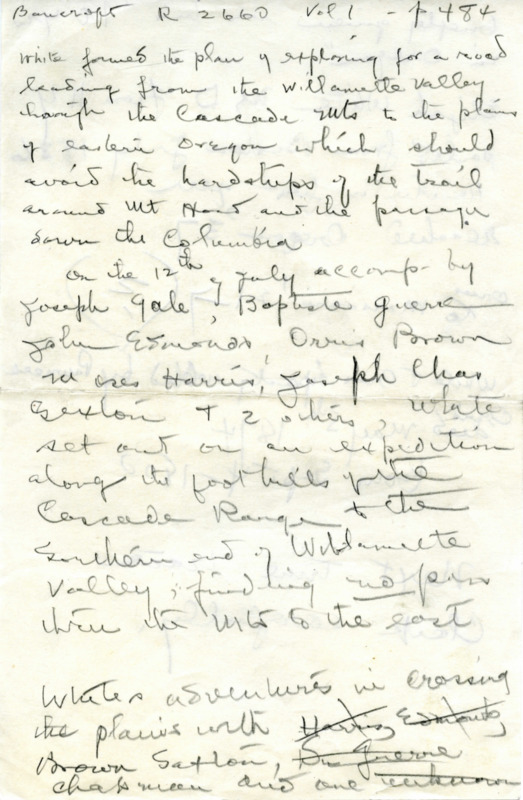 Bancroft R 2660 Vol 1 - p 484
White formed the plan of exploring for a road
leading from the Willamette Valley
through the Cascade Mts to the plains
of eastern Oregon which should
avoid the hardships of the trail
around Mt Hood and the passage
down the Columbia
On the 12th of July accomp. by
Joseph Gale, Baptiste Guerre
John Edmonds, Orris Brown
Moses Harris, Joseph Chas
Sexton + 2 others, White
set out on an expedition
along the foothills of the
Cascade Range to the
Southern end of Willamette
Valley, finding no pass
thru the Mts to the east
Whites adventures in crossing
the plains with Harris, Edmonds
Brown Saxton, Guerre
Chapman and one unknown